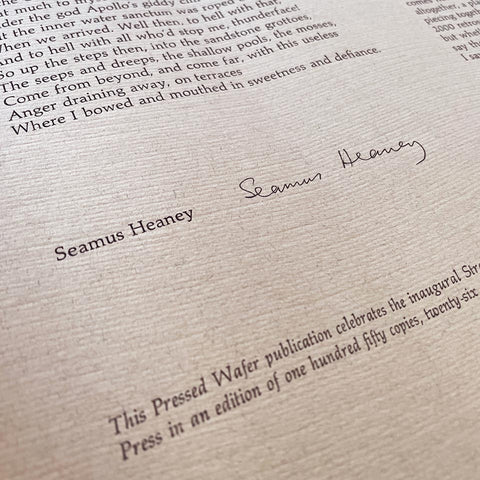 nder the god Apollo's giddy cliff
t the inner water sanctum was roped
When we arrived. Well then, to hell with that,
And to hell with all who'd stop me, thunderface!
So up the steps then, into the sandstone grottoes,
The seeps and dreeps, the shallow pools, the mosses,
Come from beyond, and come far, with this useless
Anger draining away, on terraces
Where I bowed and mouthed in sweetness and defiance.
Seamus Heaney
Seamus Heaney
comes
altogether, a
piecing togeth
2000 retro
but while
say th
I sa
This Pressed Wafer publication celebrates the inaugural Str
Press in an edition of one hundred fifty copies, twenty-six